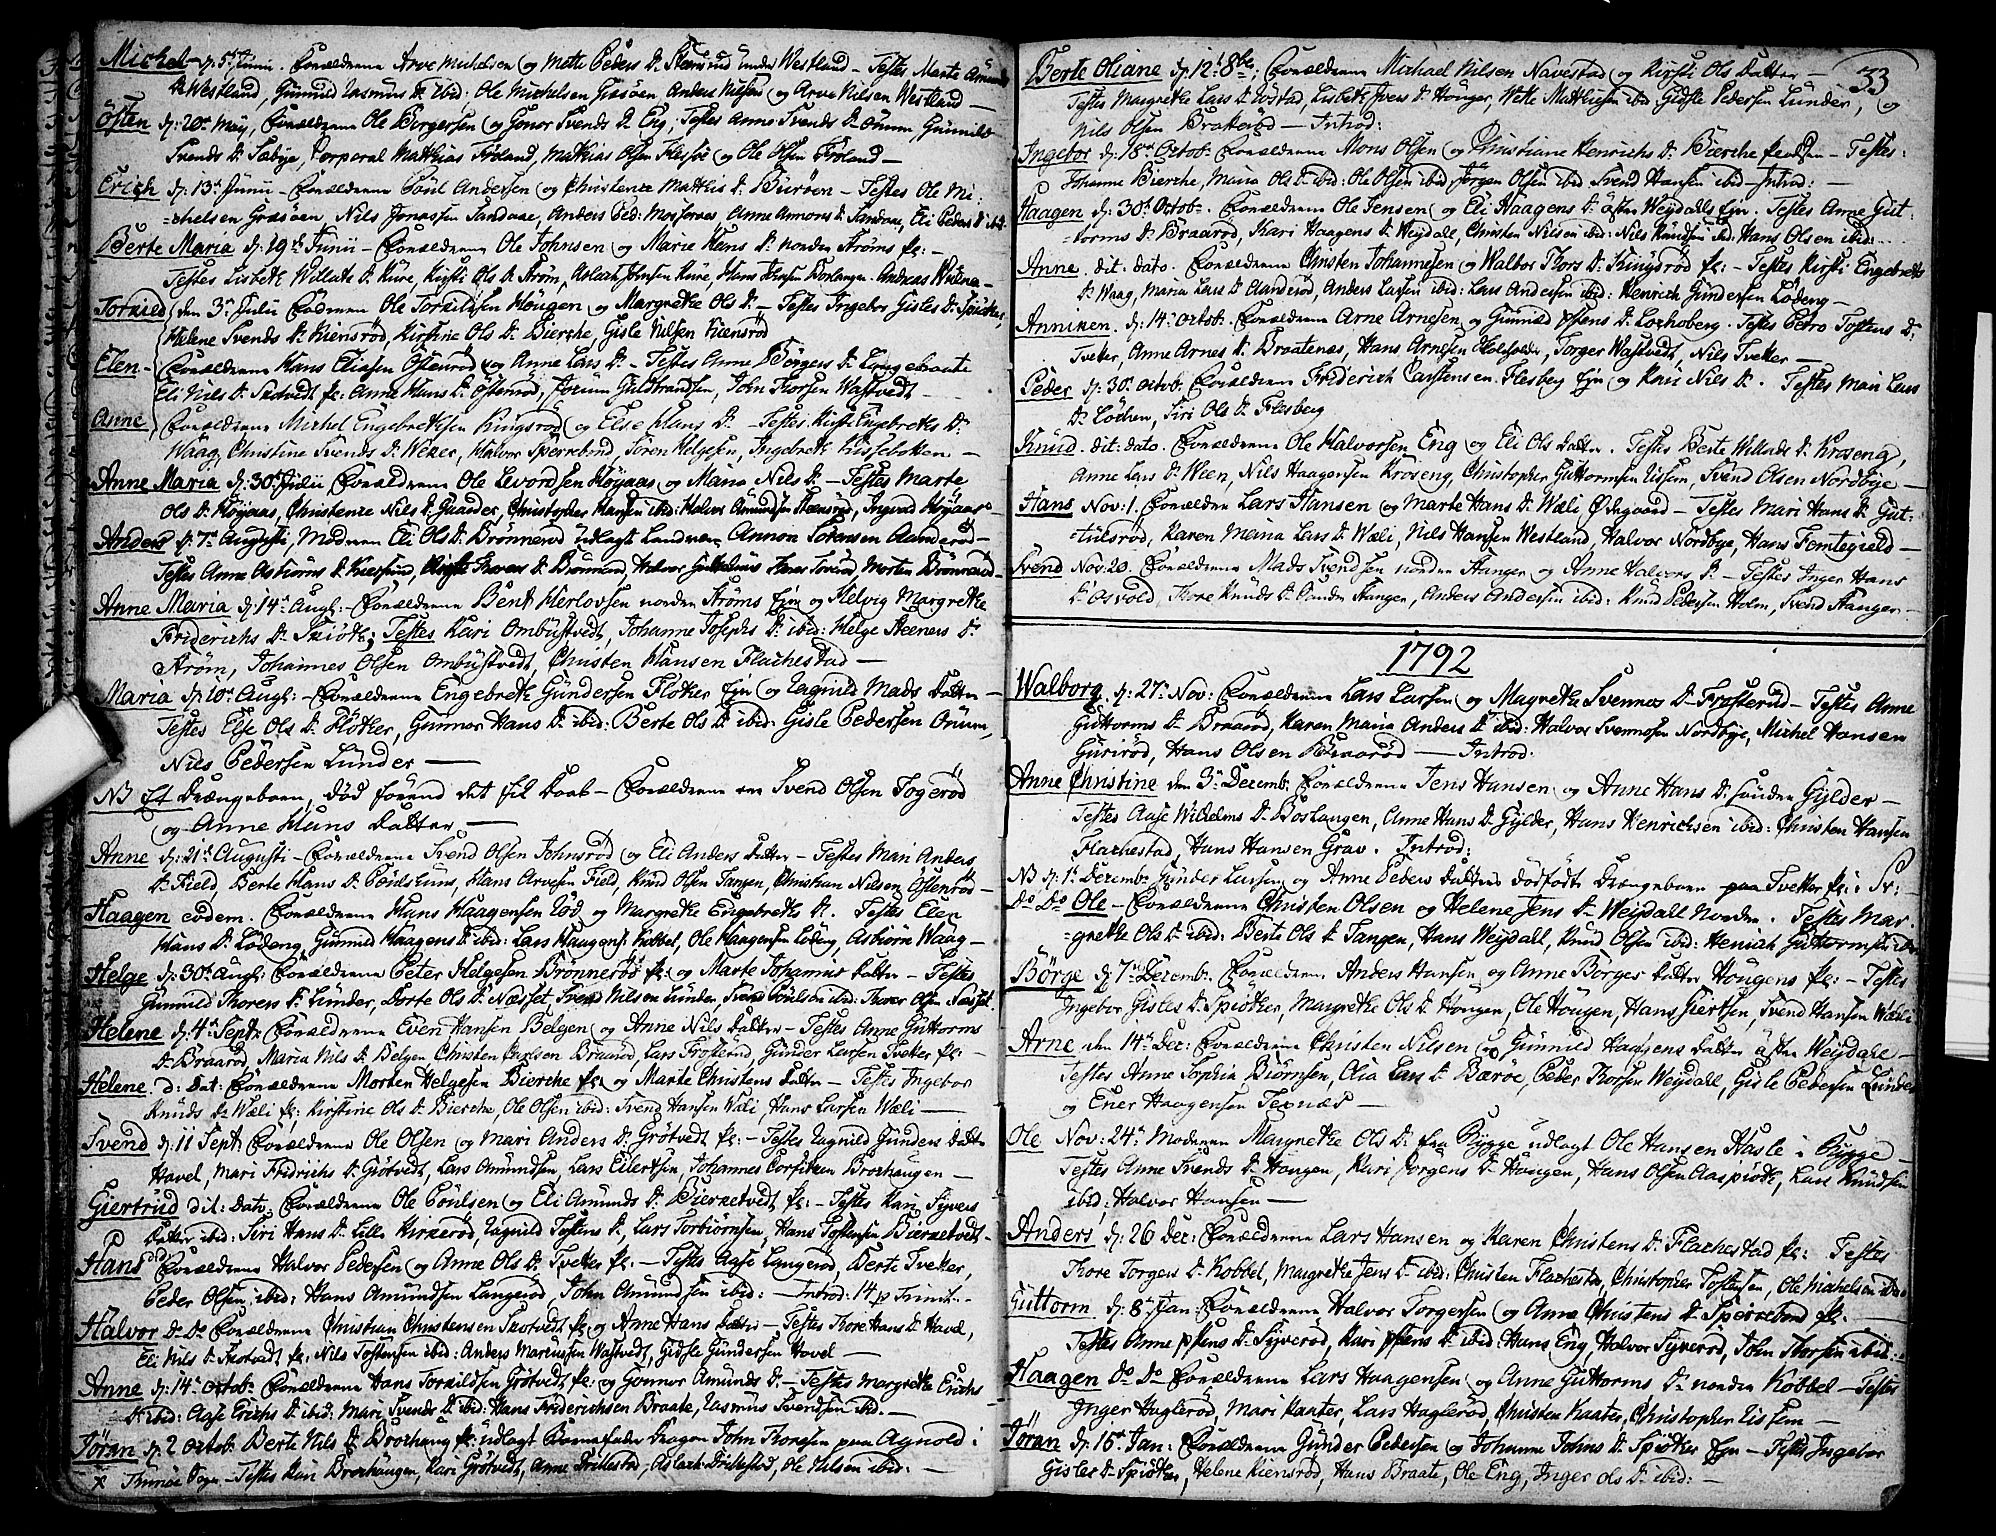 Michel d: 5t Junii. Forældrene Arve Michelsen og Mette Peders D. Stensrud under Westland – Testes Marte Amunds
D. Westland, Gunnild Rasmus D. ibid: Ole Michelsen Græsöen Anders Nilsen og Arve Nilsen Westland –
Östen d: 20de May, Forældrene Ole Borgersen og Gonor Svends D. Eng, Testes Anne Svends D. Gunnild
Svends D. Sæbye, Corporal Matthias Fröland, Mathias Olsen og Ole Olsen Fröland –
Erich d: 13t Junii – Forældrene Poul Andersen og Christence Matthis D. Buröen – Testes Ole Mi-
chelsen Græsöen Nils Jonassen Sandaae, Anders Ped: Mosfornes Anne Ammons D. Sandaae, Eli Peders D ibid
Berte Maria d: 19de Junii – Forældrene Ole Johnsen og Marie Hans D. norden Ströms
Testes Lisbeth Willats D. Kure, Kirsti Ols D. Ström, Aslach Johnsen Kure, Hans Jensen Borlangen Andreas
Torkild den 3de Julii Fadren Ole Torkildsen Hougen og Margrethe Ols D. – Testes Ingebor Gisles D. Spiötker
Helene Svends D. Kiensröd, Kirstine Ols D. Bierche, Gisle Nilsen Kiensröd
Elen – Forældrene Hans Eliasen Östenröd og Anne Lars D. – Testes Anne Börges D. Langebraate
Eli Nils D. Skotvedt Anne Hans D. Östenröd, Joruum Guldbrandsen, John Thorsen Wastvedt
Anne Forældrene Michel Engebrethsen Kingsröd og Else Hans D. – Testes Kirsti Engebreths D.
Waag, Christine Svends D. Weker, Halvor Sperrebond, Sören Helgesen, Ingebreth Kisseboken –
Anne Maria d: 30t Julii Forældrene Ole Levordsen Höyaas og Maria Nils D. – Testes Marte
Ols D. Höyaas, Christence Nils D. Gaarder, Christopher Hansen ibid: Halvor Amundsen Steensröd, Ingvald Höyaas –
Anders d: 7de Augusti, Modren Eli Ols D. Brönneröd udlagte Landværn Ammon Johansen Aamderöd –
Testes Anne Asbiörns D. Kiersund,
Anne Maria d: 14de Augl: – Forældrene Bent Herlovsen norden Ströms Ejn og Helvig Margrethe
Friderichs D. Skiöth; Testes Kari Ombustvedt, Johanne Josephs D. ibid: Helge Steeners D.
Ström, Johannes Olsen Ombustvedt, Christen Hansen Flachestad –
Maria d: 10de Augl: – Forældrene Engebreth Gundersen Flöther Ejn og Ragnild Mads Datter –
Testes Else Ols D. Flöther, Gunnor Hans D. ibid: Berte Ols D. ibid: Gisle Pedersen Onum,
Nils Pedersen Lunder –
NB Et Drængebarn, död förend det fik Daab – Forældrene er Svend Olsen Togeröd
og Anne Hans Datter –
Anne d: 21de Augusti – Forældrene Svend Olsen Johnsröd og Eli Anders Datter – Testes Mari Anders
D. Field, Berte Hans D. Hans Arvesen Field, Knud Olsen Tangen, Christian Nilsen Östenröd –
Haagen eodem. Forældrene Hans Haagensen Röd og Margrethe Engebreths D. Testes Elen
Hans D. Lödeng, Gunnild Haagens D. ibid: Lars Haagens: Kobbel, Ole Haagensen Lödeng, Asbiörn Waag –
Helge d: 30de Augl: Forældrene Peter Helgesen Brönneröd og Marte Johannes Datter – Testes
Gunnild Thores D. Lunder, Dorte Ols D. Næsset Svend Nilsen Lunder, Svend Poulsen ibid: Thorer Olsen Næsset
Helene d: 4de Septr: Forældrene Even Hansen Belgen og Anne Nils Datter – Testes Anne Guttorms
D. Braaröd, Maria Nils D. Belgen Christen Carlsen Braaröd, Lars Frosterud, Gunder Larsen Tveter –
Helene. d: Dat: Forældrene Morten Helgesen Bierche og Marte Christens Datter – Testes Ingebor
Knuds D. Wæli Kirstine Ols D. Bierche, Ole Olsen ibid: Svend Hansen Wæli, Hans Larsen Wæli –
Svend d: 11 Septr: Forældrene Ole Olsen og Mari Anders D. Grötvedt – Testes Ragnild Gunders Datter
Havel, Mari Fridrichs D. Grötvedt, Lars Amundsen, Lars Eilertsen, Johannes Brochaugen –
Giertrud dit: Dato Forældrene Ole Poulsen og Eli Amunds D. Bierketvedt – Testes Kari Syvers
Datter ibid: Siri Hans D. Lille Kirkeröd, Ragnild Tostens D., Lars Torbiörnsen, Hans Tostensen Bierketvedt –
Hans Forældrene Halvor Pedersen og Anne Ols D. Tvether – Testes Aase Langeröd, Berte Tvether,
Peder Olsen ibid: Hans Amundsen Langeröd, John Amundsen ibid: – Introd: 14 p Trinit.
Halvor Do Do Forældrene Christian Christensen Skotvedt og Anne Hans Datter – Testes Thore Hans D. Havel,
Eli Nils D. Skotvedt Nils Tostensen ibid: Anders Marcussen Wastvedt, Gidsle Gundersen Hovel –
Anne d: 14de Octob: Forældrene Hans Torkildsen Grötvedt og Gonnor Amunds D. – Testes Margrethe Erichs
D. ibid: Aase Erichs D. ibid: Mari Svends D. ibid: Hans Friderichsen Braate, Rasmus Svendsen ibid. –
Jöran d: 2 Octob: Berte Nils D. Brochaug udlagt Barnefader Dragon John Thoresen paa Agnold i
Thunöe Sogn – Testes Kari Brochaugen, Kari Grötvedt, Anne Trillestad, Aslach Trillestad, Ole Nilsen ibid: –
33
Berte Oliane d: 12t 8br; Forældrene Michael Nilsen Navestad og Kirsti Ols Datter –
Testes Margrethe Lars D. Lisbeth Ivers D. Houger, Mathiesen ibid Gidsle Pedersen Lunder, og
Nils Olsen Brakeröd – Introd:
Ingebor d: 18de Octob: Forældrene Mons Olsen og Christiane Henrichs D. Bierche – Testes:
Johanne Bierche, Maria Ols D. ibid: Ole Olsen ibid Jörgen Olsen ibid Svend Hansen ibid – Introd: –
Haagen d: 30t Octob: Forældrene Ole Jensen og Eli Haagens D. östen Weydahls Ejn. Testes Anne Gut-
torms D. Braaröd, Kari Haagens D. Weydall, Christen Nilsen ibid: Nils Knudsen ibid: Hans Olsen ibid:
Anne. dit: dato. Forældrene Christen Johannesen og Walbor Thors D. Kingsröd – Testes Kirsti Engebreths
D. Waag, Maria Lars D. Anders Larsen ibid: Lars Andersen ibid: Henrich Gundersen Lödeng –
Anniken. d: 14de Octob: Forældrene Arne Arnesen og Gunnild D. Lochoberg. Testes Petro Tostens D.
Tveter, Anne Arnes D. Braatenæs, Hans Arnesen Torger Wastvedt, Nils Tveter –
Peder d: 30t Octob: Forældrene Friderich Carstensen Flesberg Ejn og Kari Nils D. Testes Mari Lars
D. Löchen, Siri Ols D. Flesberg
Knud. dit: dato. Forældrene Ole Halvorsen Eng og Eli Ols Datter. Testes Berte Willads D. Kroseng,
Anne Lars D. Ween, Nils Haagensen Kroseng, Christopher Guttormsen Ulssen, Svend Olsen Nordbye –
Hans Nov: 1. Forældrene Lars Hansen og Marte Hans D. Wæli Ødegaard – Testes Mari Hans D. Gut-
tulsröd, Karen Maria Lars D. Wæli, Nils Hansen Westland, Halvor Nordbye, Hans Femtegield –
Svend Nov: 20. Forældrene Mads Svendsen norden Stanger og Anne Halvors D. – Testes Inger Hans
D. Osvold, Thore Knuds D. Sønder Stangen, Anders Andersen ibid: Knud Pedersen Holm, Svend Stanger –
1792
Walborg. d: 27de Nov: Forældrene Lars Larsen og Magrethe Svennes D. Frosterud – Testes Anne
Guttorms D. Braaröd, Karen Maria Anders D. ibid: Halvor Svennesen Nordbye, Michel Hansen
Guriröd, Hans Olsen Braaröd – Introd:
Anne Christine den 3de Decemb: Forældrene Jens Hansen og Anne Hans D. sønden Gylder –
Testes Aase Wilhelms D. Boslangen, Anne Hans D. Gylder, Hans Henrichsen ibid: Christen Hansen
Flachestad, Hans Hansen Grav. Introd:
NB d: 1t Decemb: Gunder Larsen og Anne Peders Datters dödfödte Drængebarn paa Tvether
Do Do Ole – Forældrene Christen Olsen og Helene Jens D. Weydall Norden. Testes Mar-
grethe Ols D. ibid: Berte Ols D. Tangen, Hans Weydall, Knud Olsen ibid: Henrich Guttormsen ibid
Börge d: 7de Decemb: Forældrene Anders Hansen og Anne Börges Datter Hougens – Testes
Ingebor Gisles D. Spiötker, Margrethe Ols D. Hougen, Ole Hougen, Hans Giertsen, Svend Hansen Wæli
Arne den 14de Dec: Forældrene Christen Nilsen og Gunnild Haagens Datter östen Weydahl –
Testes Anne Sophia Biörnsen, Olia Lars D. Bæröe, Peder Thorsen Weydall, Gisle Pedersen Lunder
og Ener Haagensen Texnæs –
Ole Nov: 24de Moderen Margrethe Ols D. fra Rygge udlagt Ole Hansen Hasle i Rygge –
Testes Anne Svends D. Hougen, Kari Jörgens D. Haugen, Hans Olsen Aaspiöth, Lars Knudsen
ibid: Halvor Hansen –
Anders d: 26 Dec: Forældrene Lars Hansen og Karen Christens D. Flachestad Testes
Thore Torgers D. Kobbel, Margrethe Jens D. ibid: Christen Flachestad, Christopher Tostensen, Ole Michelsen ibid
Guttorm d: 8de Jan: Forældrene Halvor Torgersen og Anne Christens D. Sperrebond –
Testes Anne D. Syveröd, Kari D. ibid: Hans Eng, Halvor Syveröd, John Thorsen ibid:
Haagen Do Do Forældrene Lars Haagensen og Anne Guttorms D. norden Kobbel – Testes
Inger Hugleröd, Mari Kaater, Lars Hagleröd, Christen Kaater, Christopher Ulssem –
Jöran d: 15de Jan: Forældrene Gunder Pedersen og Johanne Johns D. Spiötker Ejn – Testes Ingebor
Gisles D. Spiötker, Helene Kiensröd, Hans Braate, Ole Eng, Inger Ols D. ibid: –